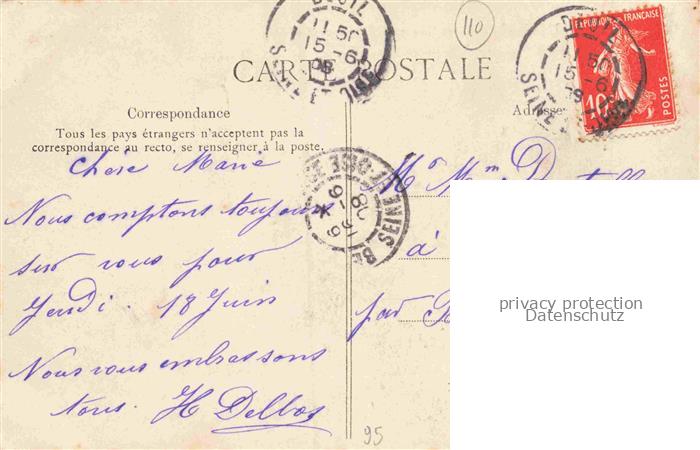 DEUIL
11 50
15 -6
09
SEINE ET OISE
110
DEUIL
11 50
15 -6
09
SEINE
REPUBLIQUE FRANÇAISE
10
POSTES
CARTE POSTALE
Correspondance
Adresse
Tous les pays étrangers n'acceptent pas la
correspondance au recto, se renseigner à la poste.
Chère Marie
Nous comptons toujours
sur vous pour
Jeudi . 18 Juin
Nous vous embrassons
tous. H Delbos
SEINE ET OISE
Mr Mme
à
par
privacy protection
Datenschutz
95